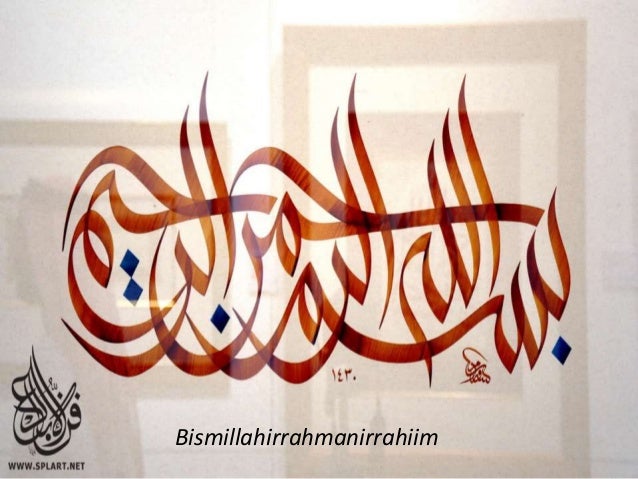 بسم الله الرحمن الرحيم
١٤٣٠
Bismillahirrahmanirrahiim
WWW.SPLART.NET